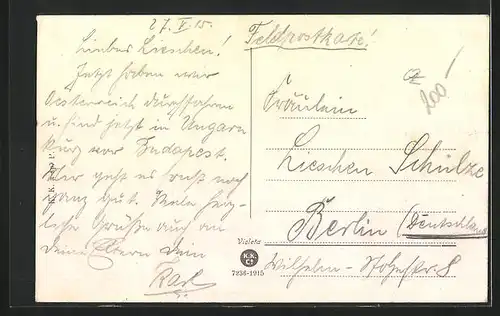 27. V. 15.
Liebes Lieschen!
Jetzt haben wir
Oesterreich durchfahren
u. sind jetzt in Ungarn
kurz vor Budapest.
Hier geht es sonst noch
ganz gut. Viele herz-
liche Grüße auch an
deine Eltern dein
Karl
Feldpostkarte!
200
Fräulein
Lieschen Schulze
Berlin (Deutschland
Wilhelm-
Violeta
K.K.
7234-1915